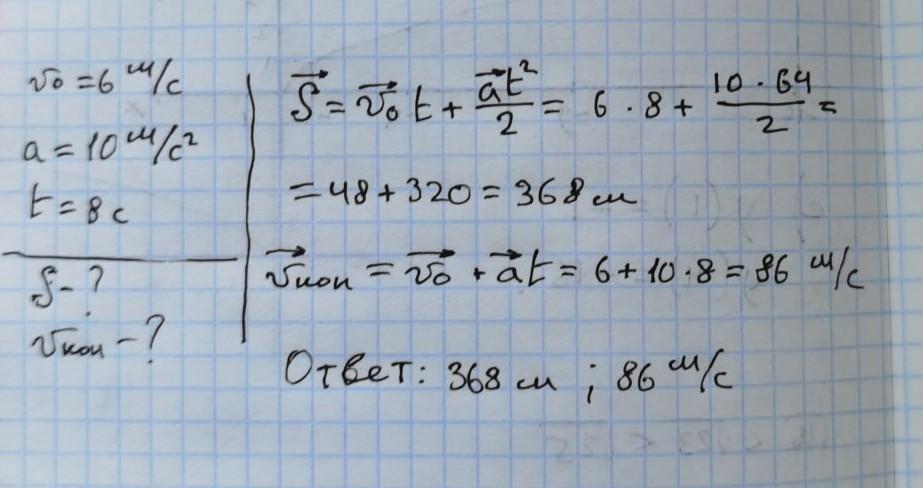 v₀ = 6 м/с
a = 10 м/с²
t = 8 с
S - ?
vкон - ?
S⃗ = v⃗₀ t + a⃗t²/2 = 6 · 8 + 10 · 64/2 =
= 48 + 320 = 368 м
v⃗кон = v⃗₀ + a⃗t = 6 + 10 · 8 = 86 м/с
Ответ: 368 м ; 86 м/с